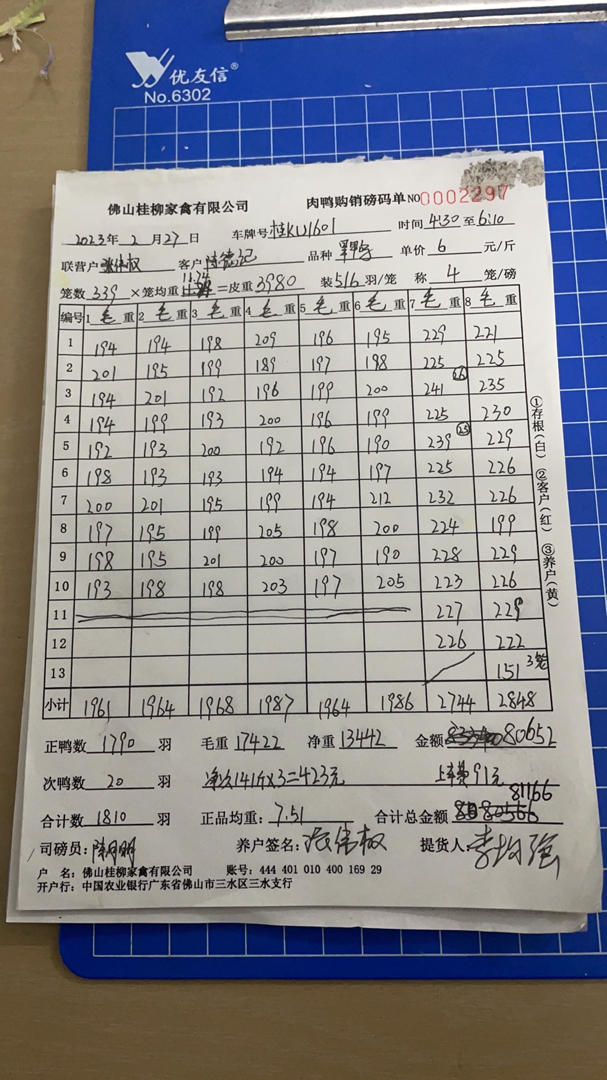 优友信®
No.6302
佛山桂柳家禽有限公司 肉鸭购销磅码单 NO 0002297
2023年 2 月 27 日 车牌号 桂KU1601 时间 4:30 至 6:10
联营户 权 客户 德记 品种 单价 6 元/斤
笼数 339 ×笼均重 11.74 =皮重 3980 装 5/6 羽/笼 称 4 笼/磅
编号 1 毛 重 2 毛 重 3 毛 重 4 毛 重 5 毛 重 6 毛 重 7 毛 重 8 毛 重
1 194 194 198 209 196 195 229 221
2 201 195 199 189 197 198 225 225
3 194 201 192 196 199 200 241 235
4 194 199 193 200 196 199 225 230
5 192 193 200 192 196 190 239 229
6 198 193 193 194 194 197 225 226
7 200 201 195 199 194 212 232 226
8 197 195 199 205 198 200 224 199
9 198 195 201 200 197 190 228 229
10 193 198 198 203 197 205 223 226
11 227 229
12 226 222
13 151 3笼
小计 1961 1964 1968 1987 1964 1986 2744 2848
正鸭数 1790 羽 毛重 17422 净重 13442 金额 80652
次鸭数 20 羽 净次141斤×3=423元 上车费91元
81166
合计数 1810 羽 正品均重: 7.51 合计总金额
司磅员: 养户签名: 伟权 提货人: 李均强
户 名: 佛山桂柳家禽有限公司 账号: 444 401 010 400 169 29
开户行: 中国农业银行广东省佛山市三水区三水支行
①存根(白) ②客户(红) ③养户(黄)